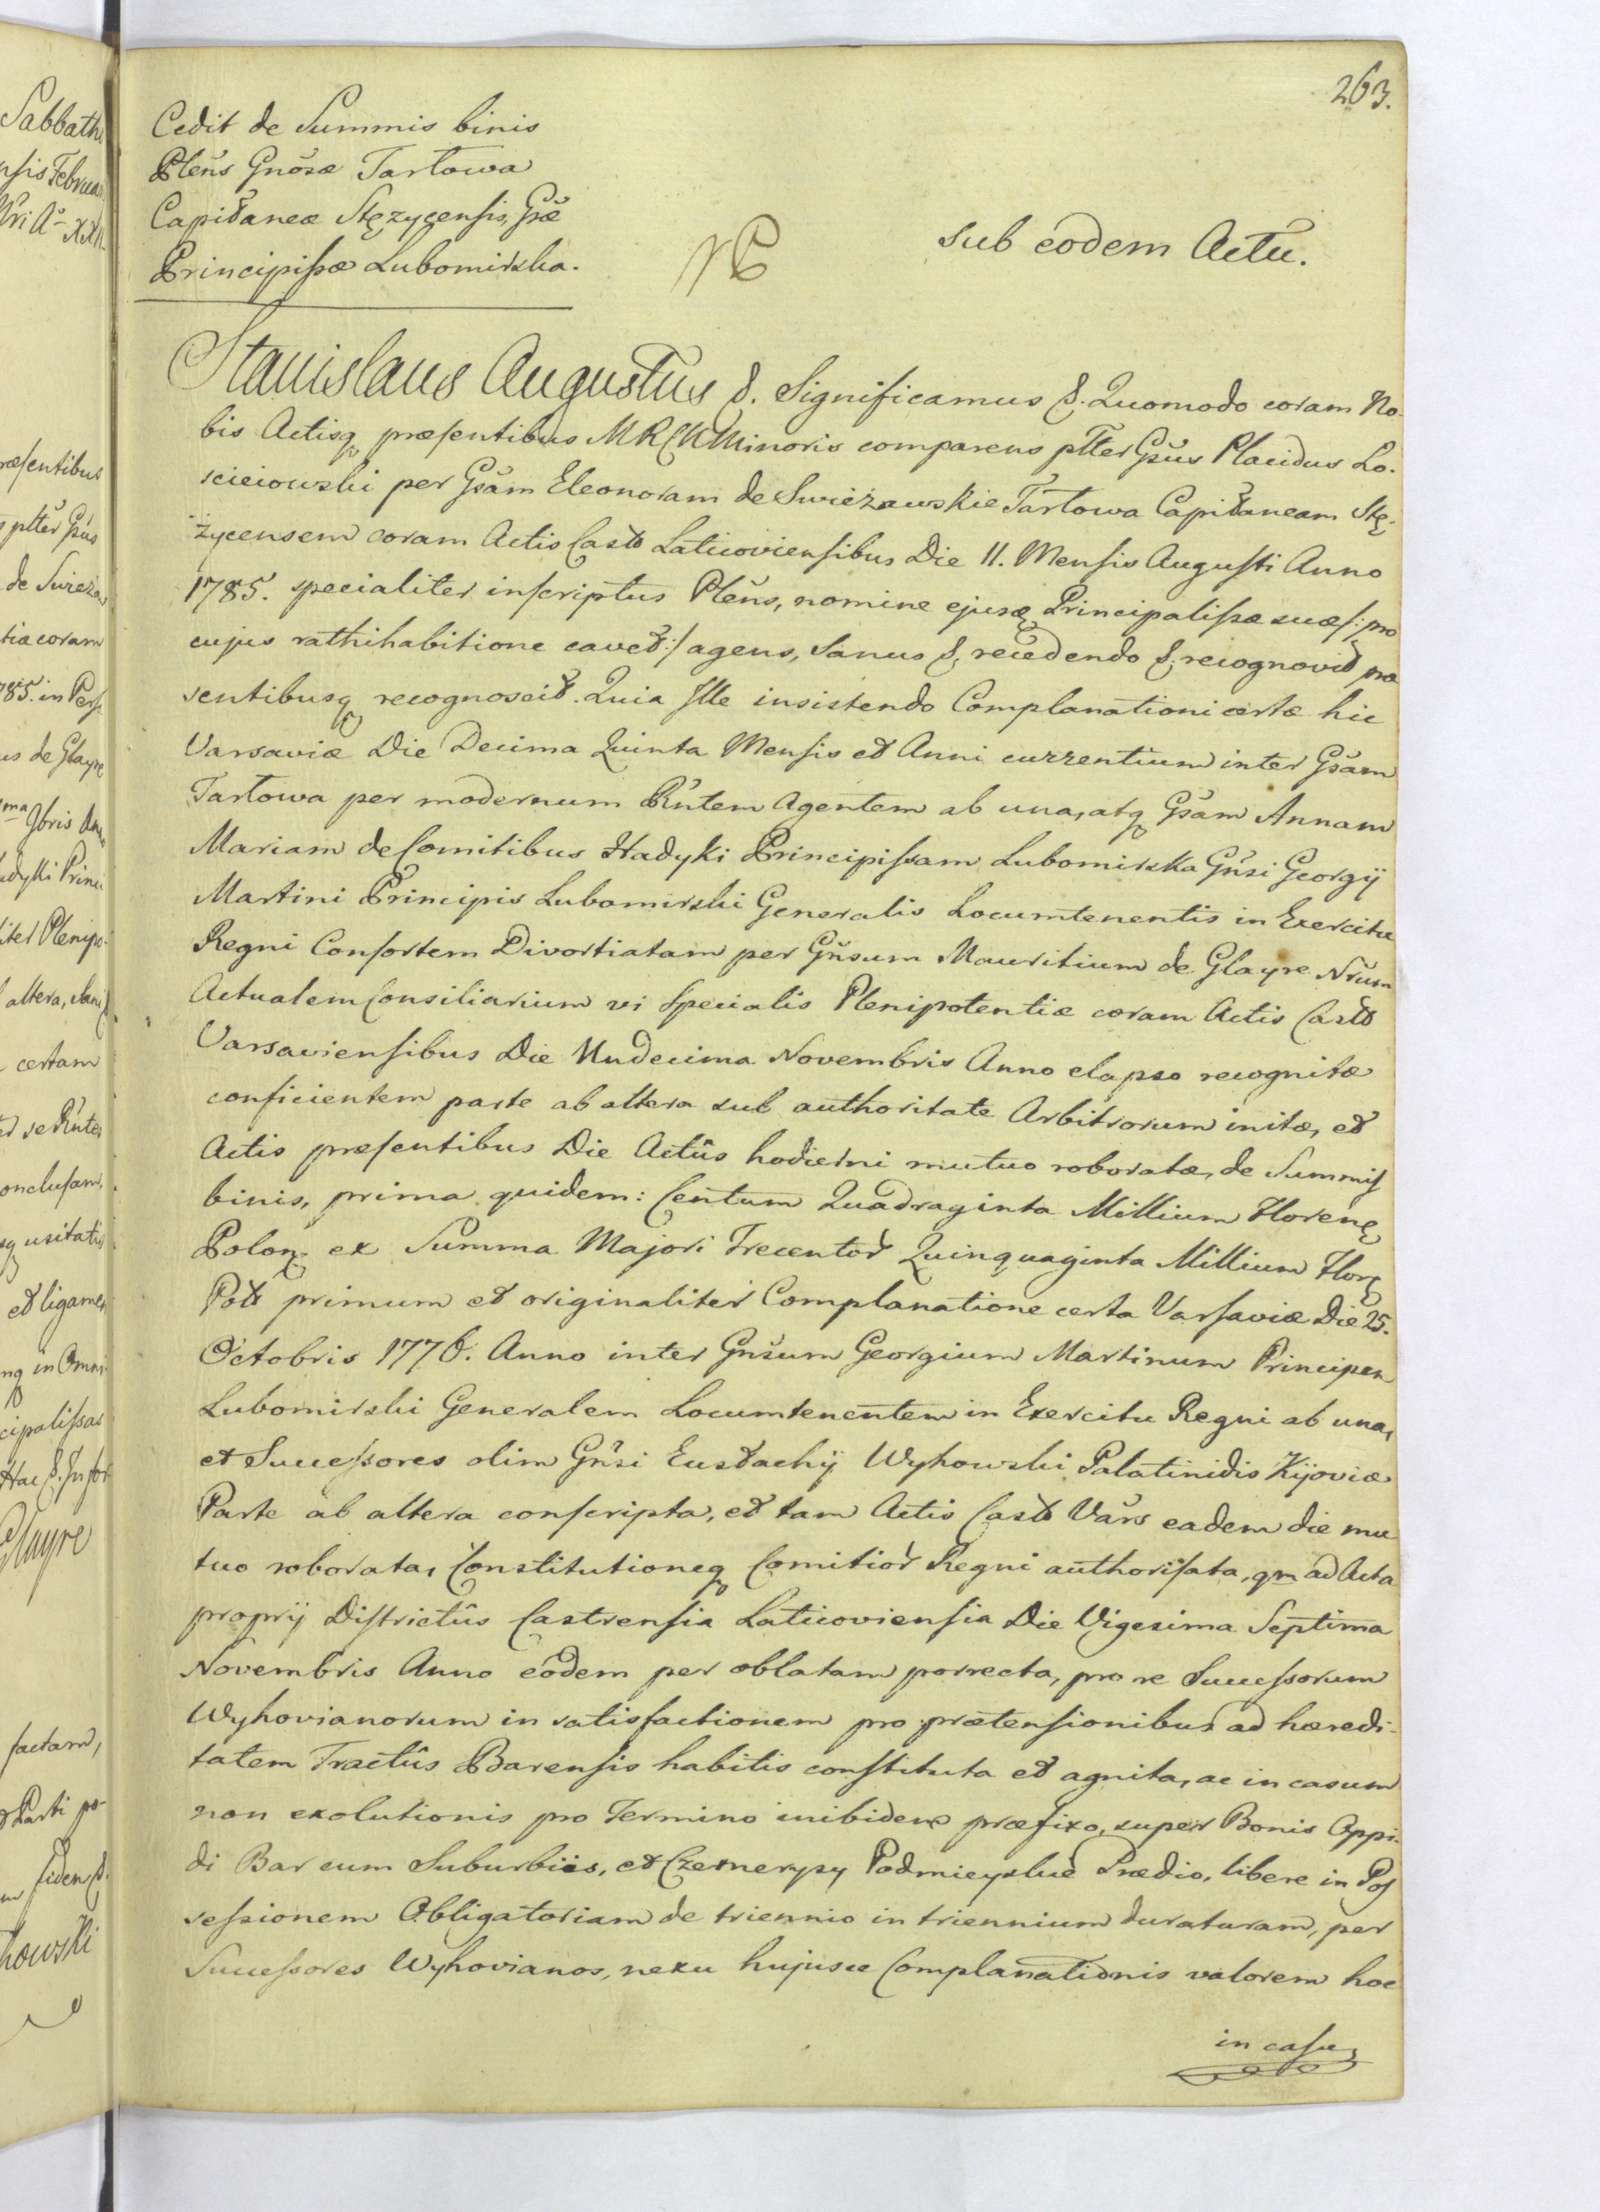 263.
Cedit de Summis binis
Plens Gnosæ Tarłowa
Capitaneæ Stęzycensis, Gsæ
Principissæ Lubomirska.
sub eodem Actu.
Stanislaus Augustus &. Significamus &. Quomodo coram No-
bis Actisq præsentibus MRCNMinoris comparens ptter Gsus Placidus Lo-
scieiowski per Gsam Eleonoram de Swieżawskie Tarłowa Capitaneam Stę-
zycensem coram Actis Castr Laticoviensibus Die 11. Mensis Augusti Anno
1785. specialiter inscriptus Plens, nomine ejusq Principalissæ suæ /: pro
cujus rathihabitione cavet :/ agens, Sanus &, recedendo &; recognovit præ
sentibusq recognoscit. Quia Ille insistendo Complanationi certæ hic
Varsaviæ Die Decima Quinta Mensis et Anni currentium inter Gsam
Tarłowa per modernum Rntem Agentem ab una, atq Gsam Annam
Mariam de Comitibus Hadyki Principissam Lubomirska Gnsi Georgij
Martini Principis Lubomirski Generalis Locumtenentis in Exercitu
Regni Consortem Divortiatam per Gnsum Mauritium de Glayre Nrum
Actualem Consiliarium vi specialis Plenipotentiæ coram Actis Castr
Varsaviensibus Die Undecima Novembris Anno elapso recognitæ
conficientem parte ab altera sub authoritate Arbitrorum initæ, et
Actis præsentibus Die Actûs hodierni mutuo roboratæ, de Summis
binis, prima quidem: Centum Quadraginta Millium Floren
Polon ex Summa Majori Trecentor Quinquaginta Millium Flor
Polo primum et originaliter Complanatione certa Varsaviæ Die 25.
Octobris 1776. Anno inter Gnsum Georgium Martinum Principem
Lubomirski Generalem Locumtenentem in Exercitu Regni ab una,
et Successores olim Gnsi Eustachij Wyhowski Palatinidis Kijoviæ
Parte ab altera conscripta, et tam Actis Castr Vars eadem die mu
tuo roborata, Constitutioneq Comitior Regni authorisata, qm ad Acta
proprij Districtûs Castrensia Laticoviensia Die Vigesima Septima
Novembris Anno eodem per oblatam porrecta, pro re Successorum
Wyhovianorum in satisfactionem pro prætensionibus ad hæredi-
tatem Tractûs Barensis habitis constituta et agnita, ac in casum
non exolutionis pro Termino inibidem præfixo, super Bonis Oppi-
di Bar cum Suburbiis, et Czemerysy Podmieyskie Prædio, libere in Pos
sessionem Obligatoriam de triennio in triennium duraturam, per
Successores Wyhovianos, nexu hujusce Complanationis valorem hoc
in casu